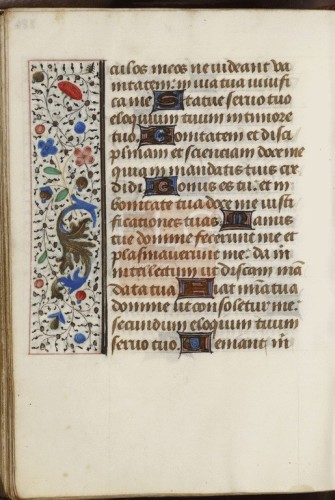 culos meos ne videant va
nitatem: in via tua vivifi
ca me Statue servo tuo
eloquium tuum in timore
tuo. Bonitatem et disci
plinam et scienciam doce me
quia mandatis tuis cre
didi Bonus es tu: et in
bonitate tua doce me iusti
ficationes tuas Manus
tue domine fecerunt me et
plasmaverunt me: da in
intellectum ut discam mā
data tua Fiat mīa tua
domine ut consoletur me:
secundum eloquium tuum
servo tuo. Veniant m̄